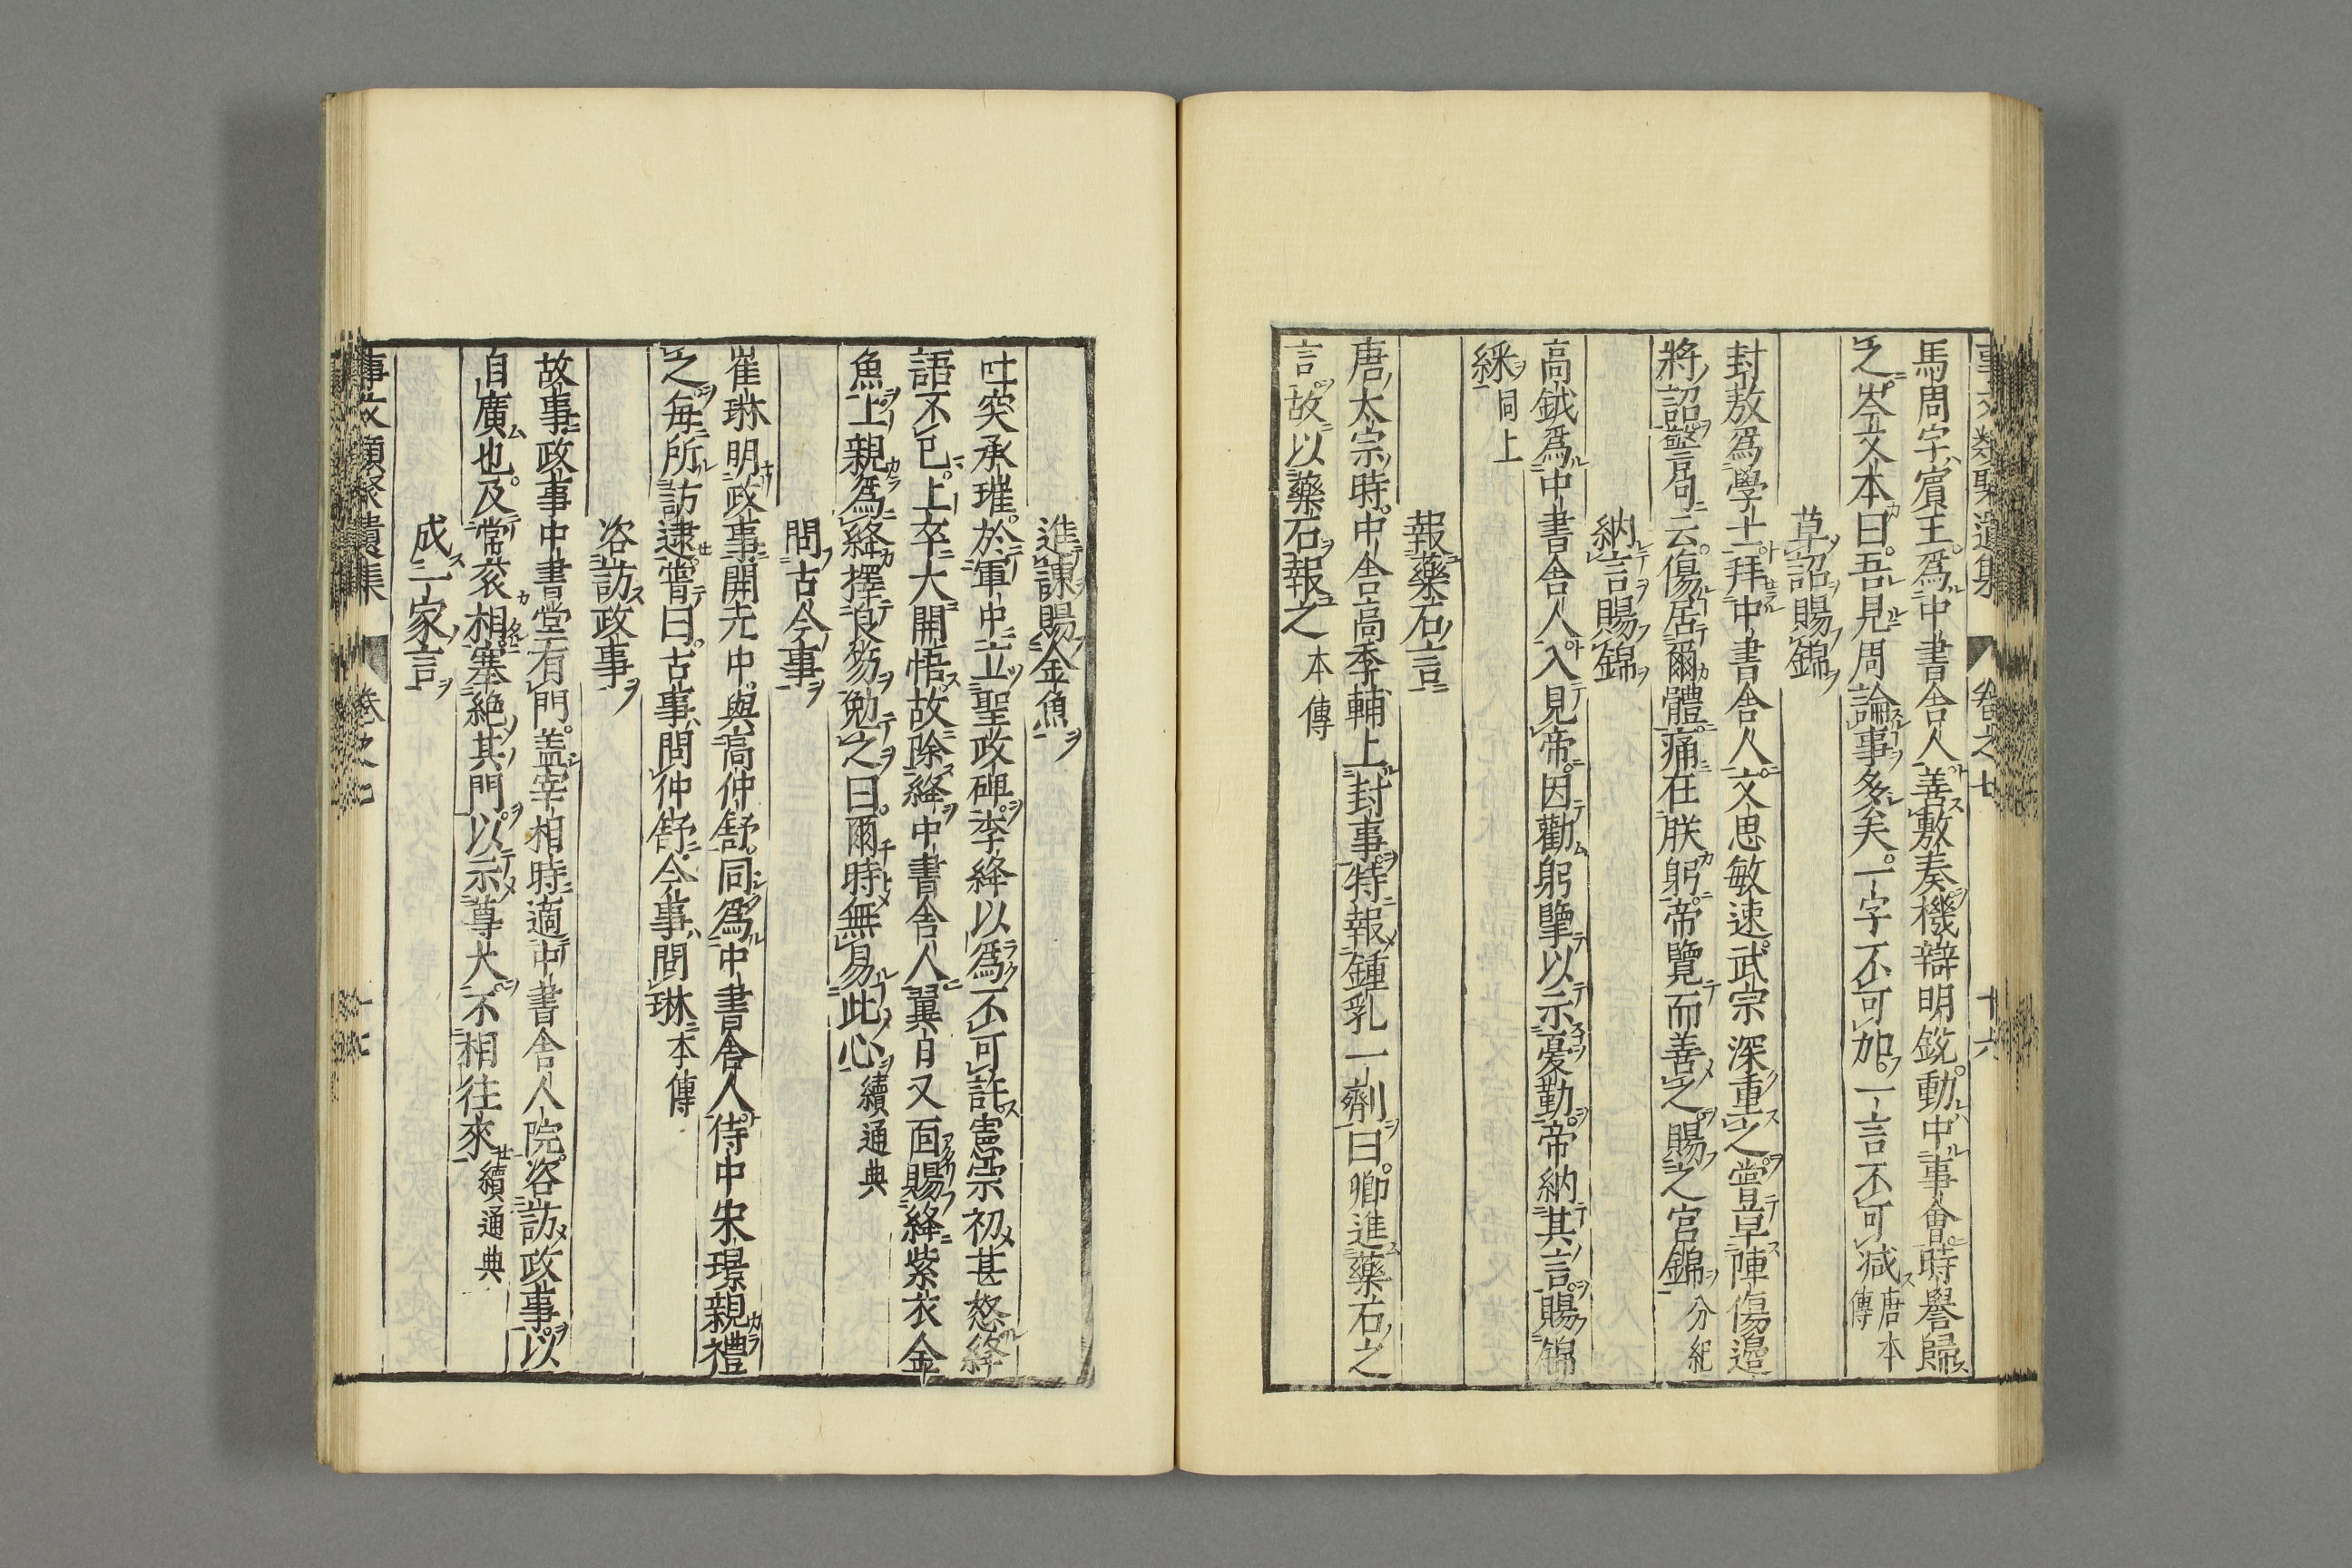 事文類聚遺集 卷之七 十六
馬周字賓王爲中書舍人善敷奏機辯明銳動中事會時譽歸
之岑文本曰吾見周論事多矣一字不可加一言不可減唐本傳
草詔賜錦
封敖爲學士拜中書舍人文思敏速武宗深重之嘗草陣傷邊
將詔警句云傷居爾體痛在朕躬帝覽而善之賜之宮錦分紀
納言賜錦
高鉞爲中書舍人入見帝因勸躬擥以示憂勤帝納其言賜錦
綵同上
報藥石言
唐太宗時中舍高季輔上封事特報鍾乳一劑曰卿進藥石之
言故以藥石報之本傳
進諫賜金魚
吐突承璀於軍中立聖政碑李絳以爲不可許憲宗初甚怒絳
語不已上卒大開悟故除絳中書舍人翼日又面賜絳紫衣金
魚上親爲絳擇良笏勉之曰爾時無易此心續通典
問古今事
崔琳明政事開元中與高仲舒同爲中書舍人侍中宋璟親禮
之每所訪逮嘗曰古事問仲舒今事問琳本傳
咨訪政事
故事政事中書堂有門盖宰相時適中書舍人院咨訪政事以
自廣也及常衮相塞絶其門以示尊大不相往來續通典
成一家言
事文類聚遺集 卷之七